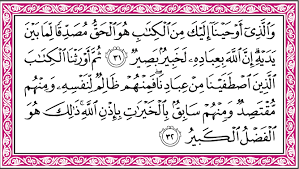 وَٱلَّذِىٓ أَوْحَيْنَآ إِلَيْكَ مِنَ ٱلْكِتَٰبِ هُوَ ٱلْحَقُّ مُصَدِّقًا لِّمَا بَيْنَ
يَدَيْهِ إِنَّ ٱللَّهَ بِعِبَادِهِۦ لَخَبِيرٌۢ بَصِيرٌ ٣١ ثُمَّ أَوْرَثْنَا ٱلْكِتَٰبَ
ٱلَّذِينَ ٱصْطَفَيْنَا مِنْ عِبَادِنَا فَمِنْهُمْ ظَالِمٌ لِّنَفْسِهِۦ وَمِنْهُم
مُّقْتَصِدٌ وَمِنْهُمْ سَابِقٌۢ بِٱلْخَيْرَٰتِ بِإِذْنِ ٱللَّهِ ذَٰلِكَ هُوَ
ٱلْفَضْلُ ٱلْكَبِيرُ ٣٢